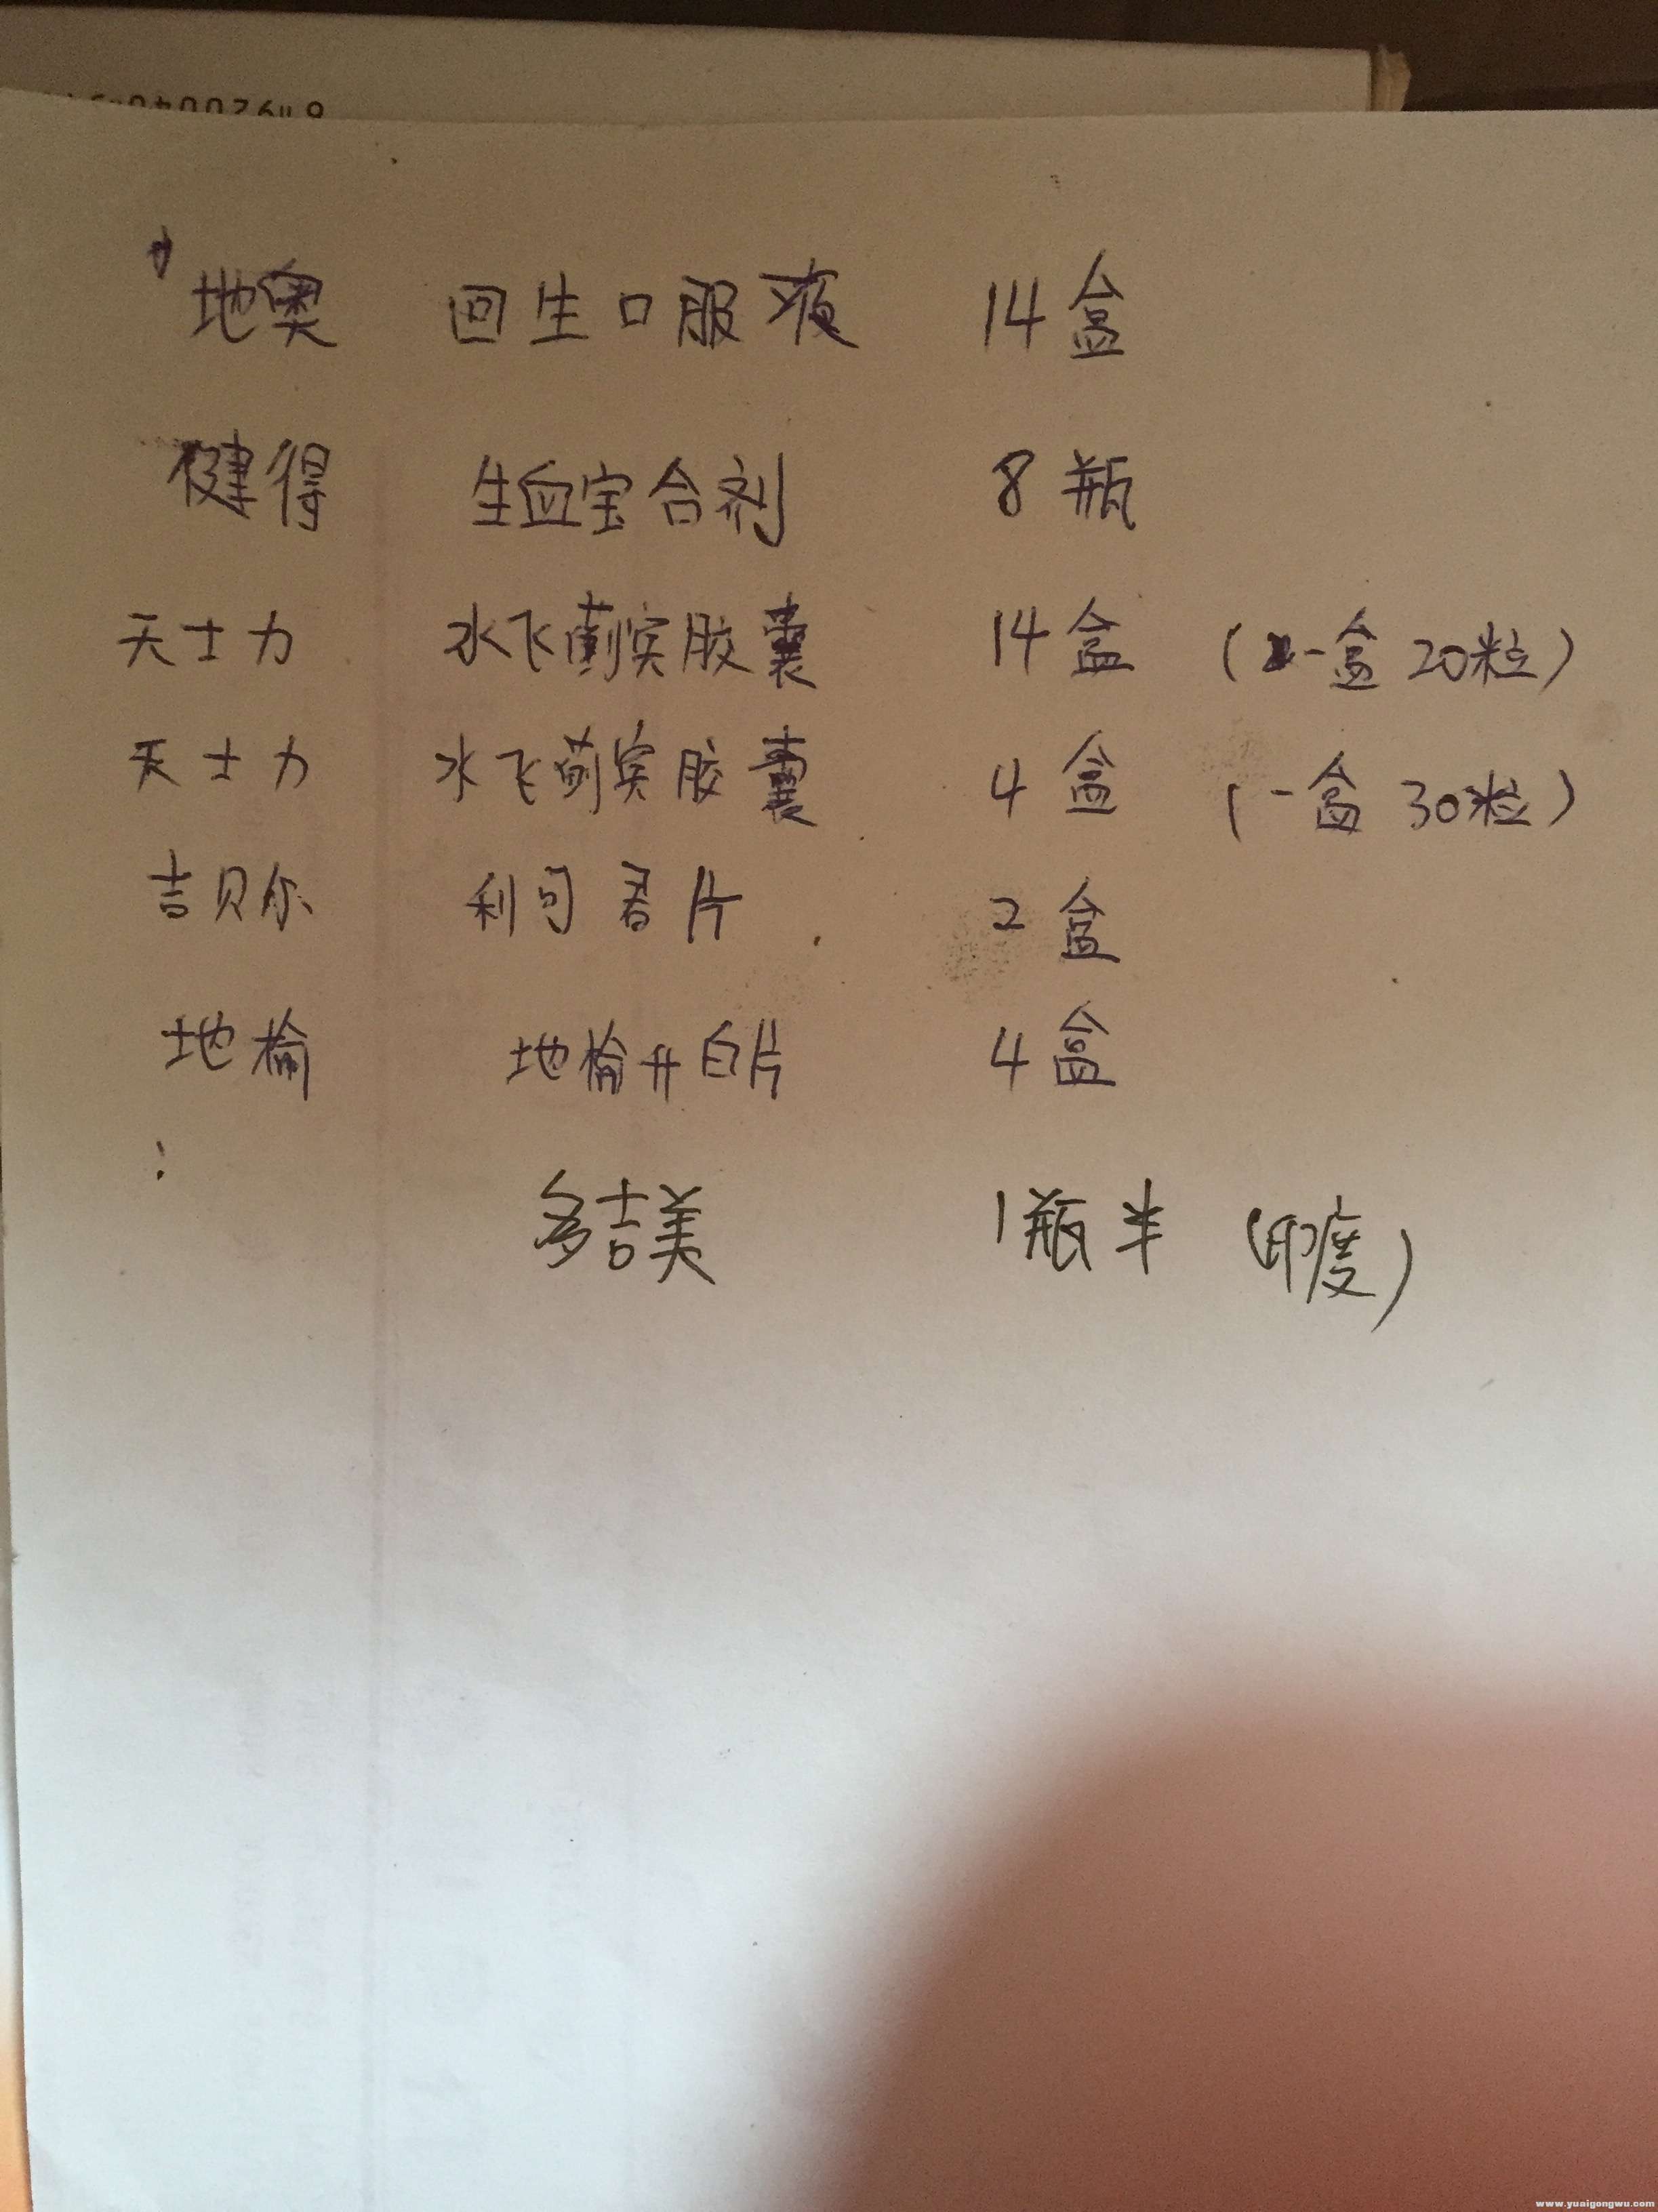 地奥 回生口服液 14盒
健得 生血宝合剂 8瓶
天士力 水飞蓟宾胶囊 14盒 (一盒20粒)
天士力 水飞蓟宾胶囊 4盒 (一盒30粒)
吉贝尔 利可君片 2盒
地榆 地榆升白片 4盒
多吉美 1瓶半 (印度)
www.yuaigongwu.com